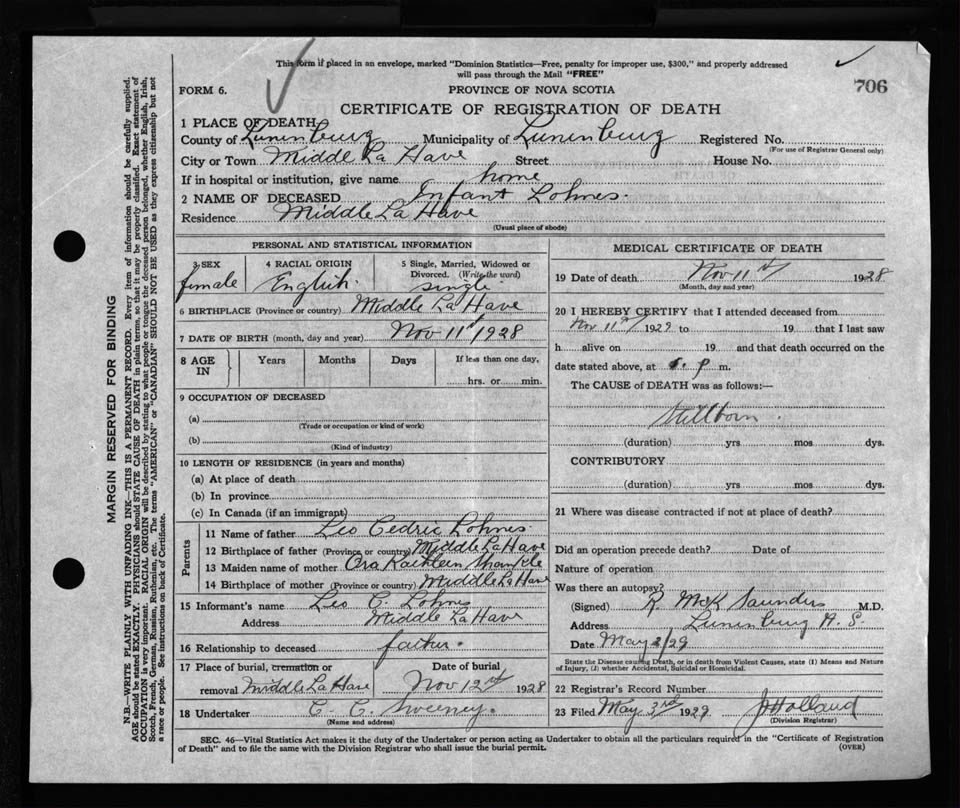 This form if placed in an envelope, marked "Dominion Statistics—Free, penalty for improper use, $300," and properly addressed
will pass through the Mail "FREE"
FORM 6. PROVINCE OF NOVA SCOTIA 706
CERTIFICATE OF REGISTRATION OF DEATH
1 PLACE OF DEATH
County of Lunenburg Municipality of Lunenburg Registered No.
(For use of Registrar General only)
City or Town Middle La Have Street House No.
If in hospital or institution, give name home
2 NAME OF DECEASED Infant Lohnes.
Residence Middle La Have
(Usual place of abode)
PERSONAL AND STATISTICAL INFORMATION
3 SEX 4 RACIAL ORIGIN 5 Single, Married, Widowed or
Divorced. (Write the word)
female English. single.
6 BIRTHPLACE (Province or country) Middle La Have
7 DATE OF BIRTH (month, day and year) Nov 11th/1928
8 AGE IN Years Months Days If less than one day,
hrs. or min.
9 OCCUPATION OF DECEASED
(a)
(Trade or occupation or kind of work)
(b)
(Kind of industry)
10 LENGTH OF RESIDENCE (in years and months)
(a) At place of death
(b) In province
(c) In Canada (if an immigrant)
Parents
11 Name of father Leo Cedric Lohnes.
12 Birthplace of father (Province or country) Middle La Have
13 Maiden name of mother Ora Kathleen Shankle
14 Birthplace of mother (Province or country) Middle La Have
15 Informant's name Leo C. Lohnes
Address Middle La Have
16 Relationship to deceased father.
17 Place of burial, cremation or Date of burial
removal Middle La Have Nov 12th 1928
18 Undertaker C. C. Sweeney.
(Name and address)
MEDICAL CERTIFICATE OF DEATH
19 Date of death Nov 11th 1928
(Month, day and year)
20 I HEREBY CERTIFY that I attended deceased from
Nov 11th 1929 to 19 that I last saw
h alive on 19 and that death occurred on the
date stated above, at p m.
The CAUSE of DEATH was as follows:—
Stillborn.
(duration) yrs mos dys.
CONTRIBUTORY
(duration) yrs mos dys.
21 Where was disease contracted if not at place of death?
Did an operation precede death? Date of
Nature of operation
Was there an autopsy?
(Signed) R. McK Saunders M.D.
Address Lunenburg N.S.
Date May 2/29
State the Disease causing Death, or in death from Violent Causes, state (1) Means and Nature
of Injury, (2) whether Accidental, Suicidal or Homicidal.
22 Registrar's Record Number
23 Filed May 3rd 1929 J Holland
(Division Registrar)
SEC. 46—Vital Statistics Act makes it the duty of the Undertaker or person acting as Undertaker to obtain all the particulars required in the "Certificate of Registration
of Death" and to file the same with the Division Registrar who shall issue the burial permit. (OVER)
MARGIN RESERVED FOR BINDING
N.B.—WRITE PLAINLY WITH UNFADING INK—THIS IS A PERMANENT RECORD. Every item of information should be carefully supplied.
AGE should be stated EXACTLY. PHYSICIANS should STATE CAUSE OF DEATH in plain terms, so that it may be properly classified. Exact statement of
OCCUPATION is very important. RACIAL ORIGIN will be described by stating to what people or tongue the deceased person belonged, whether English, Irish,
Scotch, French, German, Russian, Ruthenian, etc. The terms "AMERICAN" or "CANADIAN" SHOULD NOT BE USED as they express citizenship but not
a race or people. See instructions on back of Certificate.